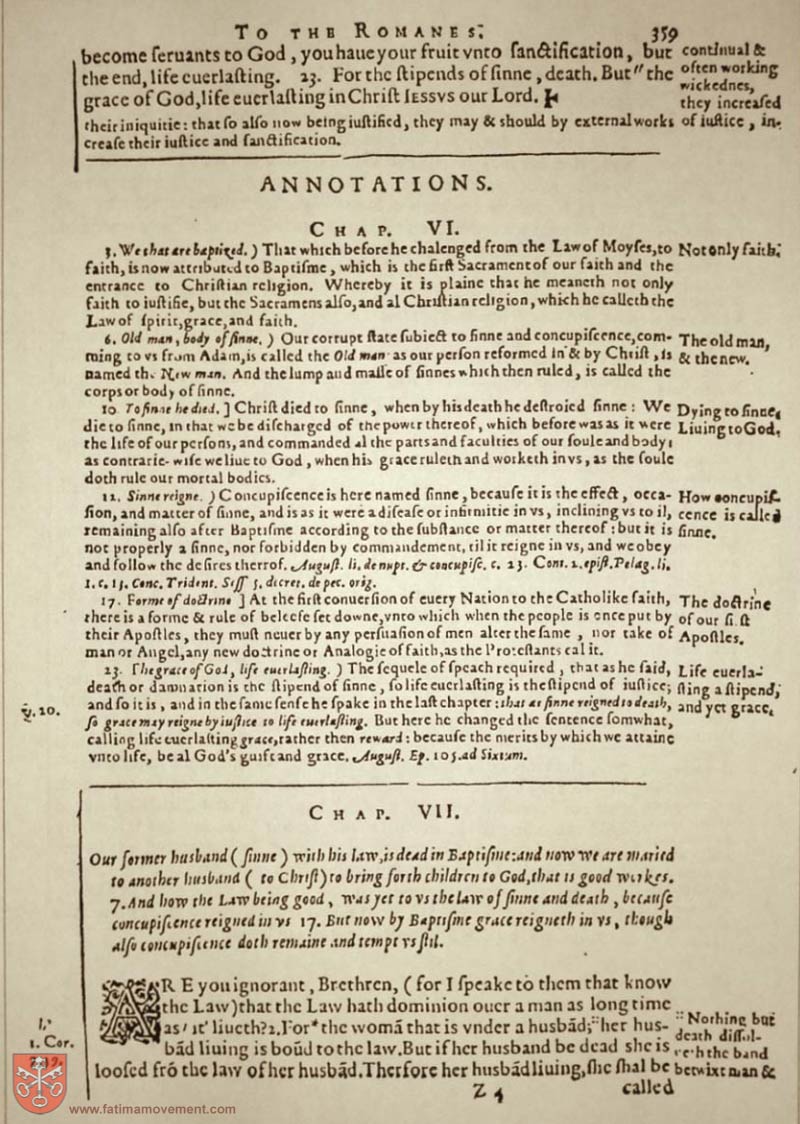 TO THE ROMANES. 359
become ſeruants to God, you haue your fruit vnto ſanctification, but
the end, life euerlaſting. 23. For the ſtipends of ſinne, death. But " the
grace of God, life euerlaſting in Chriſt IESSVS our Lord.
their iniquitie: that ſo alſo now being iuſtified, they may & should by external works
creaſe their iuſtice and ſanctification.
continual &
often working
wickednes,
they increaſed
of iuſtice, in-
ANNOTATIONS.
CHAP. VI.
3. We that are baptized.) That which before he chalenged from the Law of Moyſes, to
faith, is now attributed to Baptiſme, which is the firſt Sacrament of our faith and the
entrance to Chriſtian religion. Whereby it is plaine that he meaneth not only
faith to iuſtifie, but the Sacramens alſo, and al Chriſtian religion, which he calleth the
Law of ſpirit, grace, and faith.
Not only faith:
6. Old man, body of ſinne.) Our corrupt ſtate ſubiect to ſinne and concupiſcence, com-
ming to vs from Adam, is called the Old man as our perſon reformed in & by Chriſt, is
named the New man. And the lump and maſſe of ſinnes which then ruled, is called the
corps or body of ſinne.
The old man,
& the new.
10 To ſinne he died. ] Chriſt died to ſinne, when by his death he deſtroied ſinne: We
die to ſinne, in that we be diſcharged of the power thereof, which before was as it were
the life of our perſons, and commanded al the parts and faculties of our ſoule and body:
as contrarie-wiſe we liue to God, when his grace ruleth and worketh in vs, as the ſoule
doth rule our mortal bodies.
Dying to ſinne,
Liuing to God.
12. Sinne reigne.) Concupiſcence is here named ſinne, becauſe it is the effect, occa-
ſion, and matter of ſinne, and is as it were a diſeaſe or infirmitie in vs, inclining vs to il,
remaining alſo after Baptiſme according to the ſubſtance or matter thereof: but it is
not properly a ſinne, nor forbidden by commandement, til it reigne in vs, and we obey
and follow the deſires therrof. Auguſt. li. de nupt. & concupiſc. c. 23. Cont. 2. epiſt. Pelag. li.
1. c. 13. Conc. Trident. Seſſ 5. decret. de pec. orig.
How concupiſ-
cence is called
ſinne.
17. Forme of doctrine ] At the firſt conuerſion of euery Nation to the Catholike faith,
there is a forme & rule of beleefe ſet downe, vnto which when the people is once put by
their Apoſtles, they muſt neuer by any perſuaſion of men alter the ſame, nor take of
man or Angel, any new doctrine or Analogie of faith, as the Proteſtants cal it.
The doctrine
of our firſt
Apoſtles.
23. The grace of God, life euerlaſting.) The ſequele of ſpeach required, that as he ſaid,
death or damnation is the ſtipend of ſinne, ſo life euerlaſting is the ſtipend of iuſtice;
and ſo it is, and in the ſame ſenſe he ſpake in the laſt chapter: that as ſinne reigned to death,
ſo grace may reigne by iuſtice to life euerlaſting. But here he changed the ſentence ſomwhat,
calling life euerlaſting grace, rather then reward: becauſe the merits by which we attaine
vnto life, be al God's guift and grace. Auguſt. Ep. 105. ad Sixtum.
Life euerla-
ſting a ſtipend,
and yet grace.
v. 20.
CHAP. VII.
Our former husband ( ſinne ) with his law, is dead in Baptiſme: and now we are maried
to another husband ( to Chriſt) to bring forth children to God, that is good workes.
7. And how the Law being good, was yet to vs the law of ſinne and death, becauſe
concupiſcence reigned in vs 17. But now by Baptiſme grace reigneth in vs, though
alſo concupiſcence doth remaine and tempt vs ſtil.
ARE you ignorant, Brethren, (for I ſpeake to them that know
the Law) that the Law hath dominion ouer a man as long time
as it liueth? 2. For * the womā that is vnder a husbād; :: her hus-
bād liuing is boūd to the law. But if her husband be dead she is
looſed frō the law of her husbād. 3. Therfore her husbād liuing, ſhe ſhal be
Z 4 called
:: Nothing but
death diſſol-
ueth the band
betwixt man &
1. Cor.
7, 39.
www.fatimamovement.com